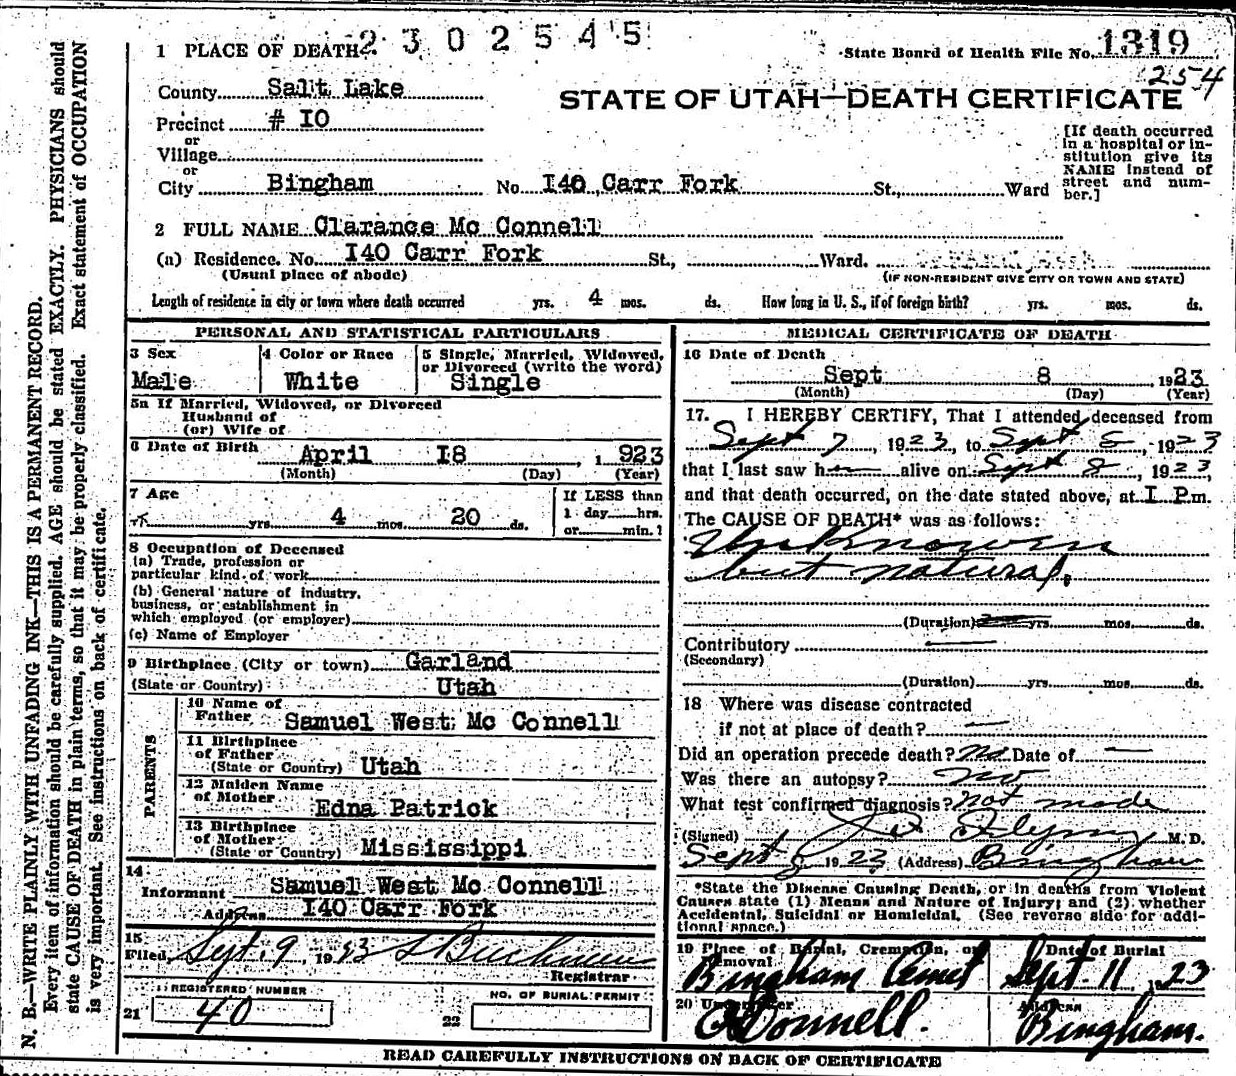 2302545
1 PLACE OF DEATH
State Board of Health File No. 1319
254
County Salt Lake
STATE OF UTAH—DEATH CERTIFICATE
Precinct # IO
or
Village
or
City Bingham No. I40 Carr Fork St., Ward
[If death occurred
in a hospital or in-
stitution give its
NAME instead of
street and num-
ber.]
2 FULL NAME Clarance Mc Connell
(a) Residence. No. I40 Carr Fork St., Ward.
(Usual place of abode) (IF NON-RESIDENT GIVE CITY OR TOWN AND STATE)
Length of residence in city or town where death occurred yrs. 4 mos. ds. How long in U. S., if of foreign birth? yrs. mos. ds.
PERSONAL AND STATISTICAL PARTICULARS
3 Sex
Male
4 Color or Race
White
5 Single, Married, Widowed,
or Divorced (write the word)
Single
5a If Married, Widowed, or Divorced
Husband of
(or) Wife of
6 Date of Birth April I8, 1923
(Month) (Day) (Year)
7 Age
yrs. 4 mos. 20 ds.
If LESS than
1 day hrs.
or min.?
8 Occupation of Deceased
(a) Trade, profession or
particular kind of work
(b) General nature of industry,
business, or establishment in
which employed (or employer)
(c) Name of Employer
9 Birthplace (City or town) Garland
(State or Country) Utah
PARENTS
10 Name of
Father Samuel West Mc Connell
11 Birthplace
of Father
(State or Country) Utah
12 Maiden Name
of Mother Edna Patrick
13 Birthplace
of Mother
(State or Country) Mississippi
14
Informant Samuel West Mc Connell
Address I40 Carr Fork
15
Filed, Sept. 9 1923
Registrar
REGISTERED NUMBER
21 40
NO. OF BURIAL PERMIT
22
MEDICAL CERTIFICATE OF DEATH
16 Date of Death
Sept 8, 1923
(Month) (Day) (Year)
17. I HEREBY CERTIFY, That I attended deceased from
Sept 7, 1923, to Sept 8, 1923
that I last saw h alive on Sept 8, 1923,
and that death occurred, on the date stated above, at I P.m.
The CAUSE OF DEATH* was as follows:
Unknowen
but natural.
(Duration) yrs. mos. ds.
Contributory
(Secondary)
(Duration) yrs. mos. ds.
18 Where was disease contracted
if not at place of death?
Did an operation precede death? No Date of
Was there an autopsy? no
What test confirmed diagnosis? not made
(Signed) Flynn M. D.
Sept 8 1923 (Address) Bingham
*State the Disease Causing Death, or in deaths from Violent
Causes state (1) Means and Nature of Injury; and (2) whether
Accidental, Suicidal or Homicidal. (See reverse side for addi-
tional space.)
19 Place of Burial, Cremation, or
Removal
Bingham Cemet
Date of Burial
Sept. 11 1923
20 Undertaker
O'Donnell.
Address
Bingham.
READ CAREFULLY INSTRUCTIONS ON BACK OF CERTIFICATE
N. B.—WRITE PLAINLY WITH UNFADING INK—THIS IS A PERMANENT RECORD.
Every item of information should be carefully supplied. AGE should be stated EXACTLY. PHYSICIANS should
state CAUSE OF DEATH in plain terms, so that it may be properly classified. Exact statement of OCCUPATION
is very important. See instructions on back of certificate.